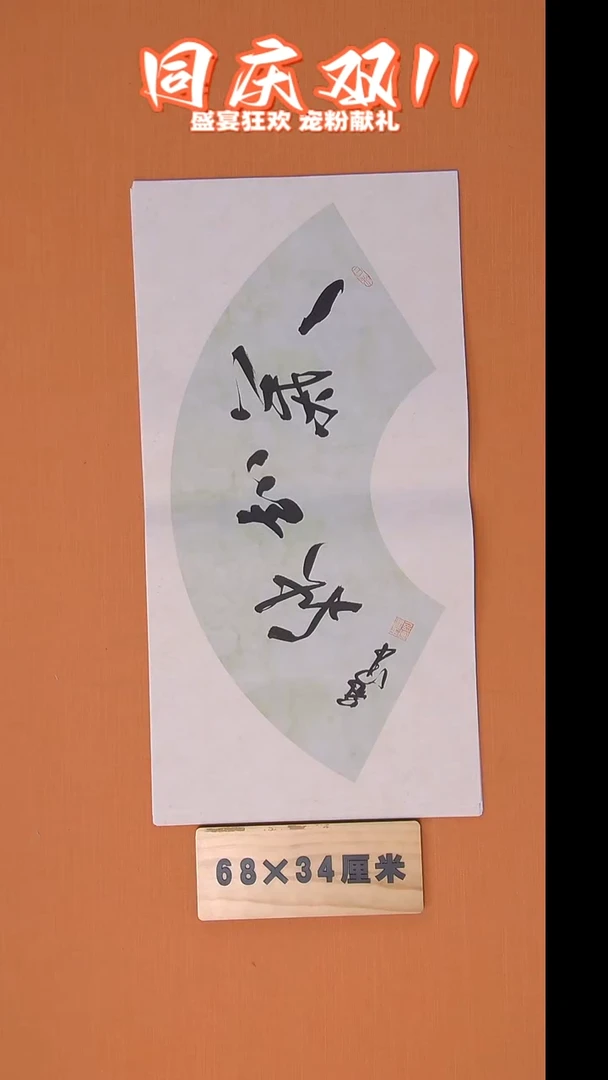 同庆双11
盛宴狂欢 宠粉献礼
一葉知秋
68×34厘米